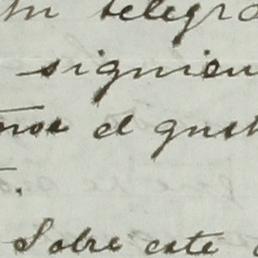 un telegra
siguien
el gust
Sobre este